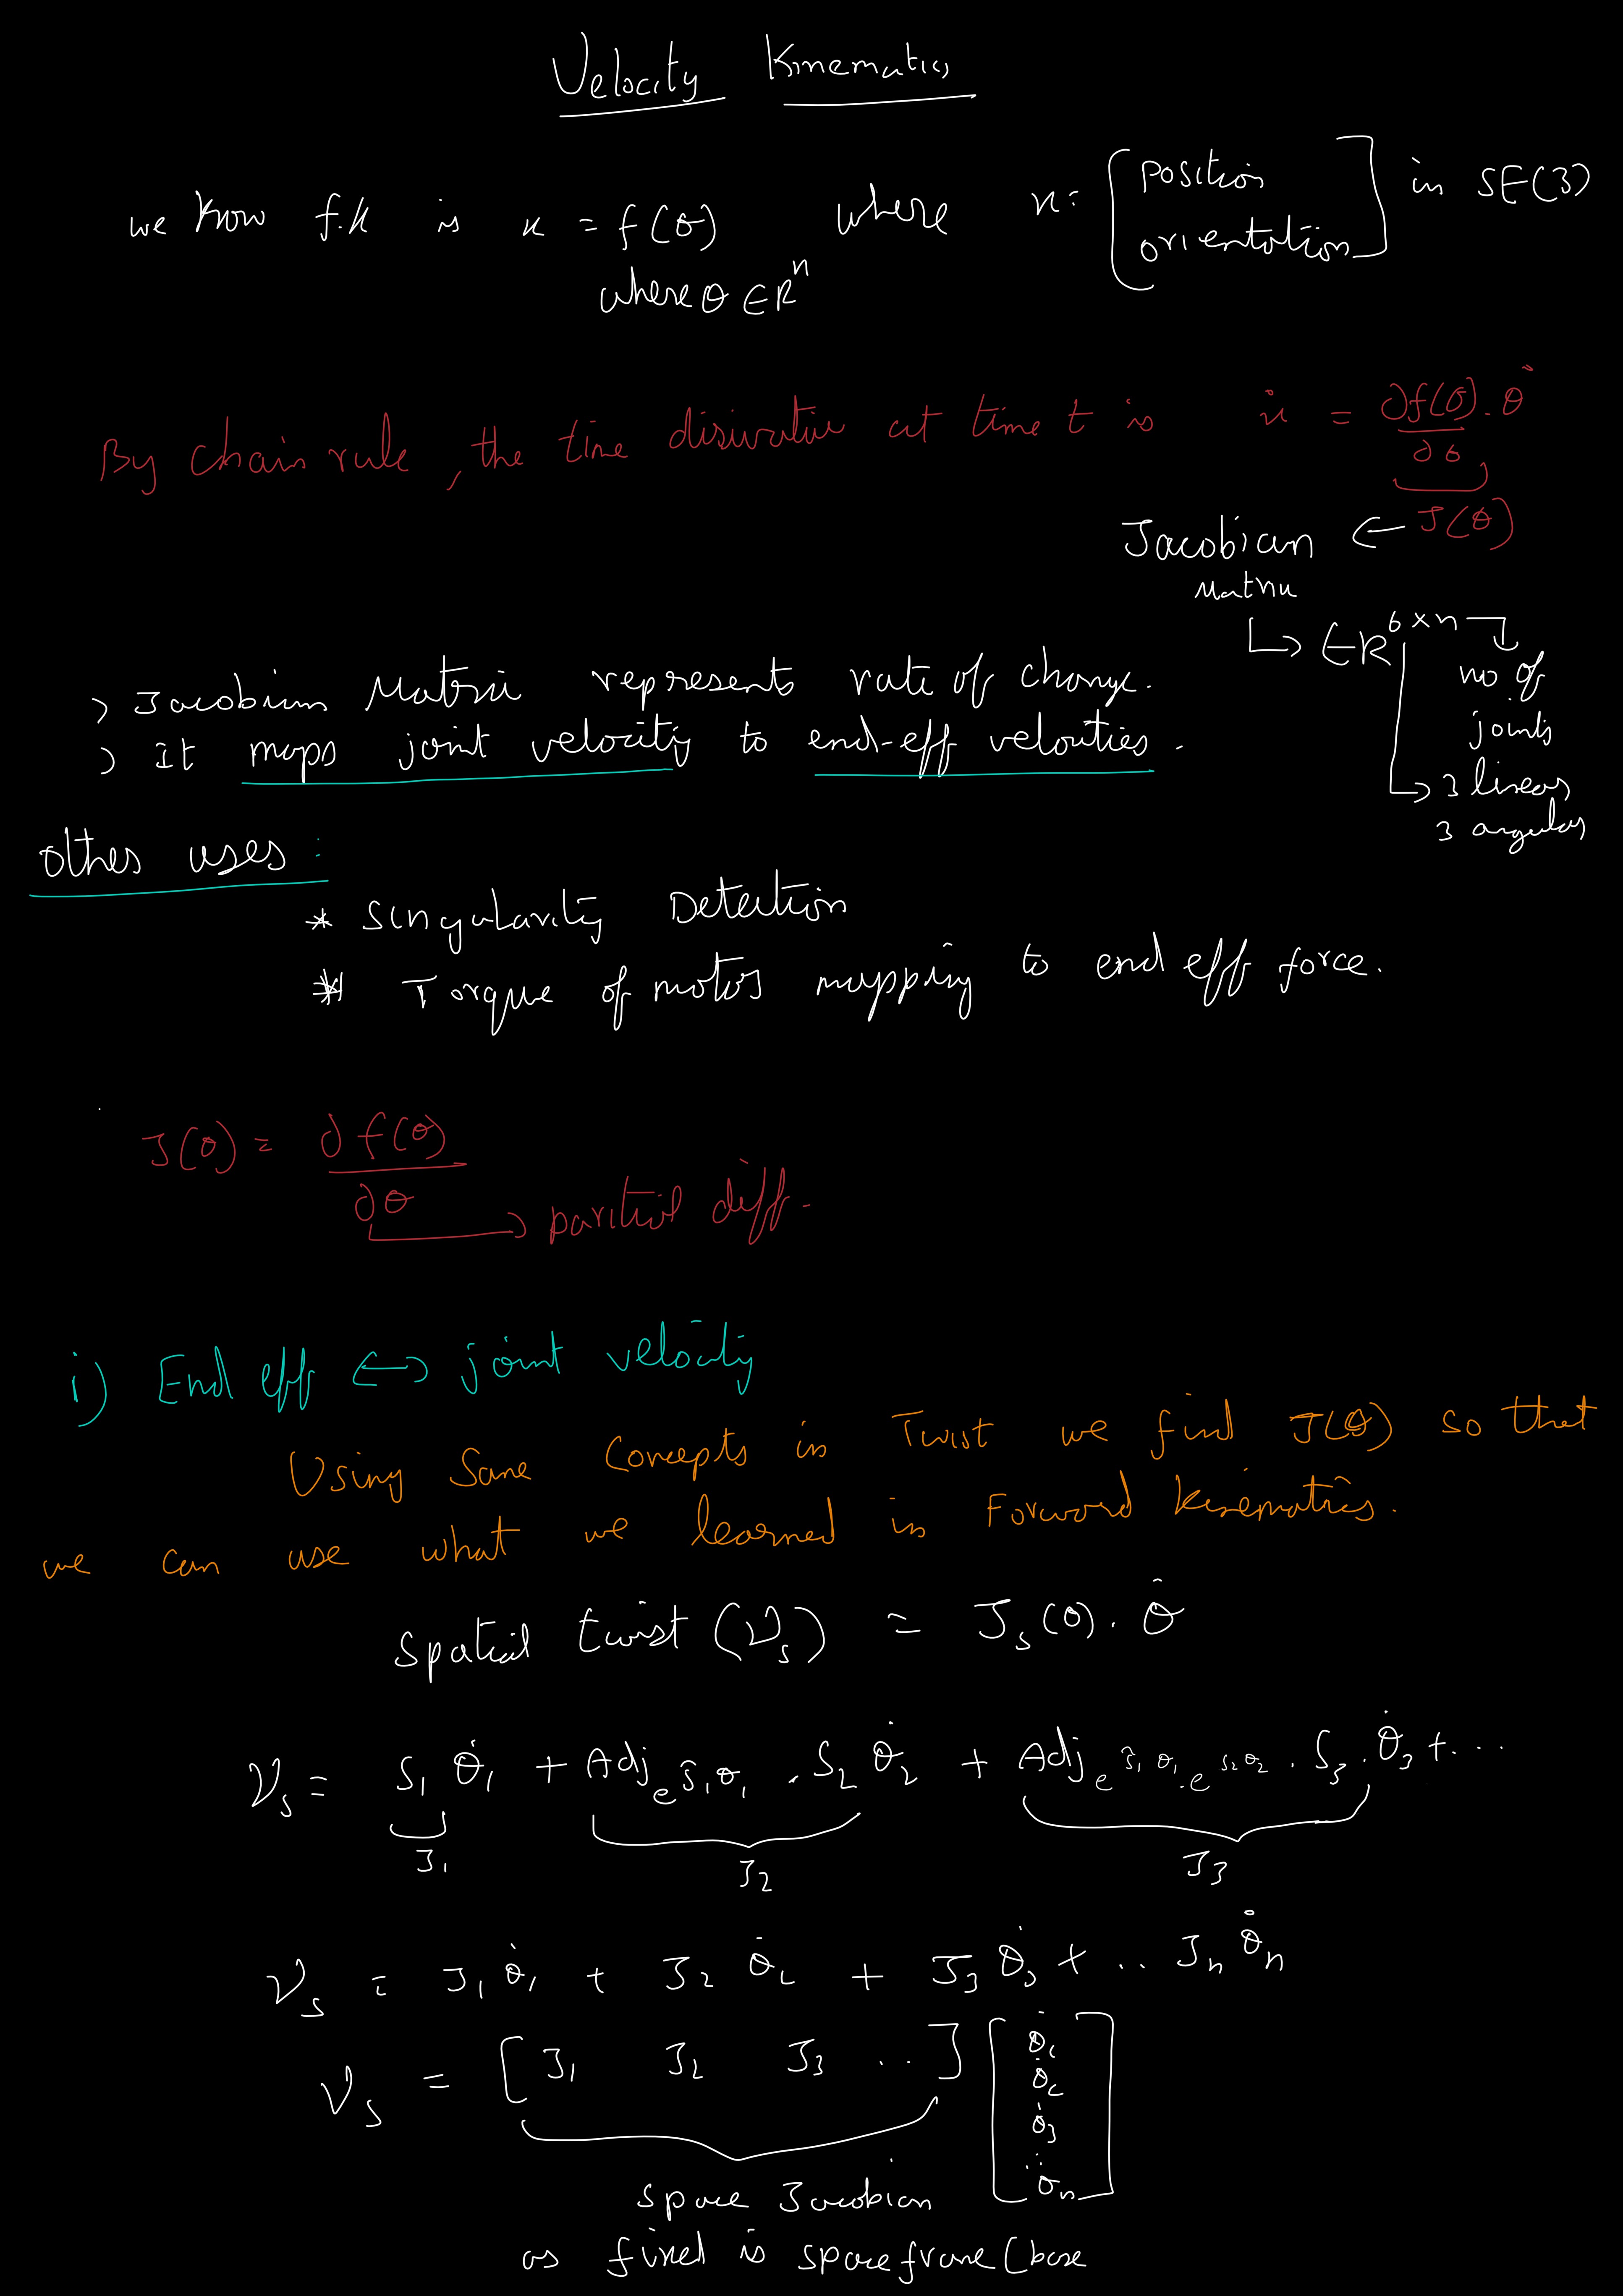 Velocity Kinematics
we know f.k is x = f(θ) where x: [position orientation] in SE(3)
where θ ∈ R^n
By chain rule, the time disivative at time t is ẋ = ∂f(θ)/∂θ . θ̇
Jacobian ← J(θ)
Matrix
↳ ∈ R^6×n
no of
joints
↳ 3 linear
3 angular
> Jacobian Matrix represents rate of change.
> It maps joint velocity to end-eff velocities.
other uses :
* Singularity Detection
* Torque of motor mapping to end eff force.
J(θ) = ∂f(θ)/∂θ → paritial diff.
i) End eff ↔ joint velocity
Using Same Concepts in Twist we find J(θ) so that
we can use what we learned in Forward kinematics.
Spatial twist (𝒱s) = Js(θ). θ̇
𝒱s = S1 θ̇1 + Adj e^ŝ1θ1 . S2 θ̇2 + Adj e^ŝ1θ1 . e^s2θ2 . S3 . θ̇3 + ...
J1 J2 J3
𝒱s = J1 θ̇1 + J2 θ̇2 + J3 θ̇3 + .. Jn θ̇n
𝒱s = [J1 J2 J3 ..] [θ̇1 θ̇2 θ̇3 ∴ θ̇n]
Space Jacobian
as fixed is space frame (base